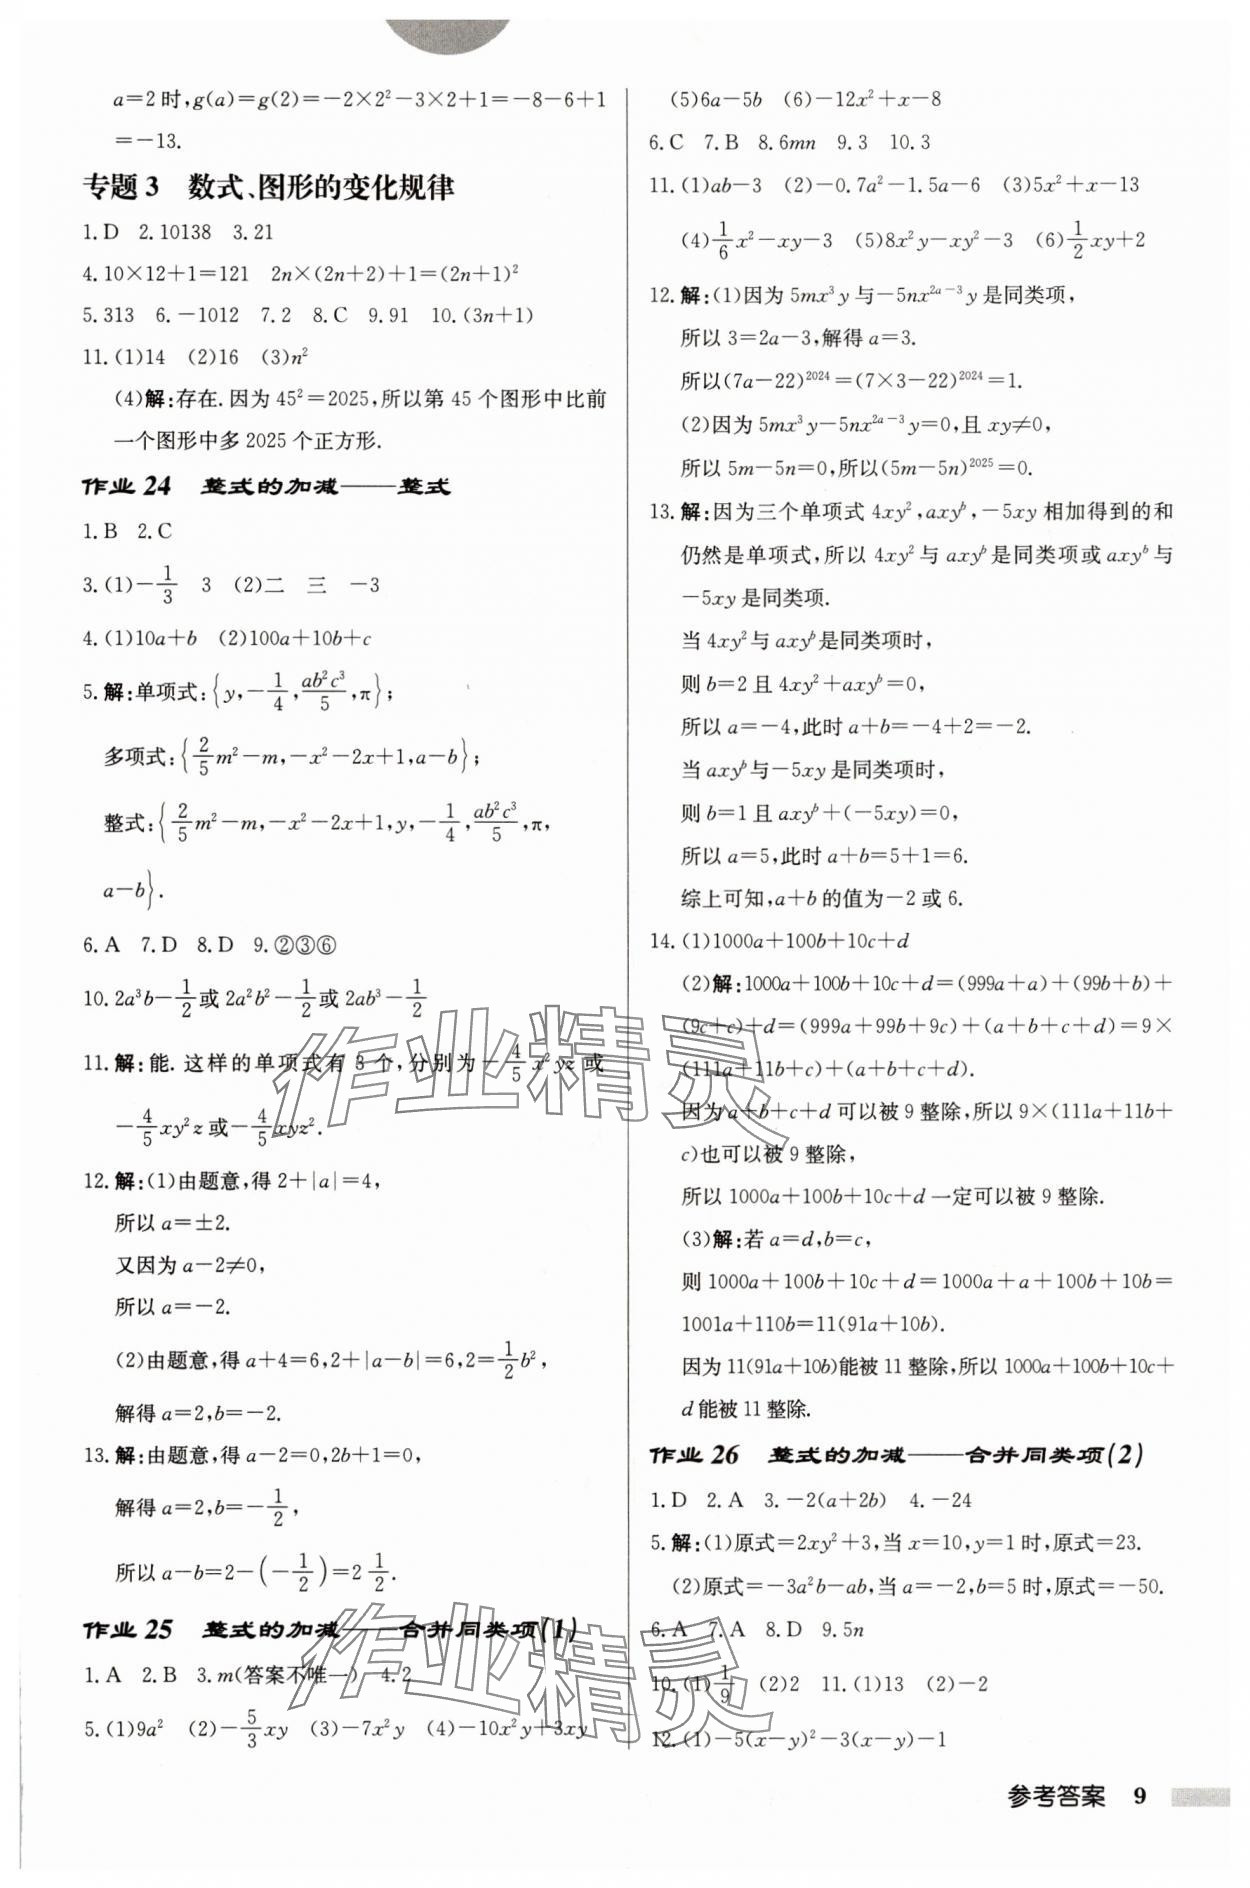 a=2时,g(a)=g(2)=-2×2²-3×2+1=-8-6+1
=-13.
专题3 数式、图形的变化规律
1.D 2.10138 3.21
4.10×12+1=121 2n×(2n+2)+1=(2n+1)²
5.313 6.-1012 7.2 8.C 9.91 10.(3n+1)
11.(1)14 (2)16 (3)n²
(4)解:存在.因为45²=2025,所以第45个图形中比前
一个图形中多2025个正方形.
作业24 整式的加减——整式
1.B 2.C
3.(1)-1/3 3 (2)二 三 -3
4.(1)10a+b (2)100a+10b+c
5.解:单项式:{y,-1/4,ab²c³/5,π};
多项式:{2/5m²-m,-x²-2x+1,a-b};
整式:{2/5m²-m,-x²-2x+1,y,-1/4,ab²c³/5,π,
a-b}.
6.A 7.D 8.D 9.②③⑥
10.2a³b-1/2或2a²b²-1/2或2ab³-1/2
11.解:能.这样的单项式有3个,分别为-4/5x²yz或
-4/5xy²z或-4/5xyz².
12.解:(1)由题意,得2+|a|=4,
所以a=±2.
又因为a-2≠0,
所以a=-2.
(2)由题意,得a+4=6,2+|a-b|=6,2=1/2b²,
解得a=2,b=-2.
13.解:由题意,得a-2=0,2b+1=0,
解得a=2,b=-1/2,
所以a-b=2-(-1/2)=2 1/2.
作业25 整式的加减——合并同类项(1)
1.A 2.B 3.m(答案不唯一) 4.2
5.(1)9a² (2)-5/3xy (3)-7x²y (4)-10x²y+3xy
(5)6a-5b (6)-12x²+x-8
6.C 7.B 8.6mn 9.3 10.3
11.(1)ab-3 (2)-0.7a²-1.5a-6 (3)5x²+x-13
(4)1/6x²-xy-3 (5)8x²y-xy²-3 (6)1/2xy+2
12.解:(1)因为5mx³y与-5nx²ᵃ⁻³y是同类项,
所以3=2a-3,解得a=3.
所以(7a-22)²⁰²⁴=(7×3-22)²⁰²⁴=1.
(2)因为5mx³y-5nx²ᵃ⁻³y=0,且xy≠0,
所以5m-5n=0,所以(5m-5n)²⁰²⁵=0.
13.解:因为三个单项式4xy²,axyᵇ,-5xy相加得到的和
仍然是单项式,所以4xy²与axyᵇ是同类项或axyᵇ与
-5xy是同类项.
当4xy²与axyᵇ是同类项时,
则b=2且4xy²+axyᵇ=0,
所以a=-4,此时a+b=-4+2=-2.
当axyᵇ与-5xy是同类项时,
则b=1且axyᵇ+(-5xy)=0,
所以a=5,此时a+b=5+1=6.
综上可知,a+b的值为-2或6.
14.(1)1000a+100b+10c+d
(2)解:1000a+100b+10c+d=(999a+a)+(99b+b)+
(9c+c)+d=(999a+99b+9c)+(a+b+c+d)=9×
(111a+11b+c)+(a+b+c+d).
因为a+b+c+d可以被9整除,所以9×(111a+11b+
c)也可以被9整除,
所以1000a+100b+10c+d一定可以被9整除.
(3)解:若a=d,b=c,
则1000a+100b+10c+d=1000a+a+100b+10b=
1001a+110b=11(91a+10b).
因为11(91a+10b)能被11整除,所以1000a+100b+10c+
d能被11整除.
作业26 整式的加减——合并同类项(2)
1.D 2.A 3.-2(a+2b) 4.-24
5.解:(1)原式=2xy²+3,当x=10,y=1时,原式=23.
(2)原式=-3a²b-ab,当a=-2,b=5时,原式=-50.
6.A 7.A 8.D 9.5n
10.(1)1/9 (2)2 11.(1)13 (2)-2
12.(1)-5(x-y)²-3(x-y)-1
参考答案 9
作业精灵
作业精灵